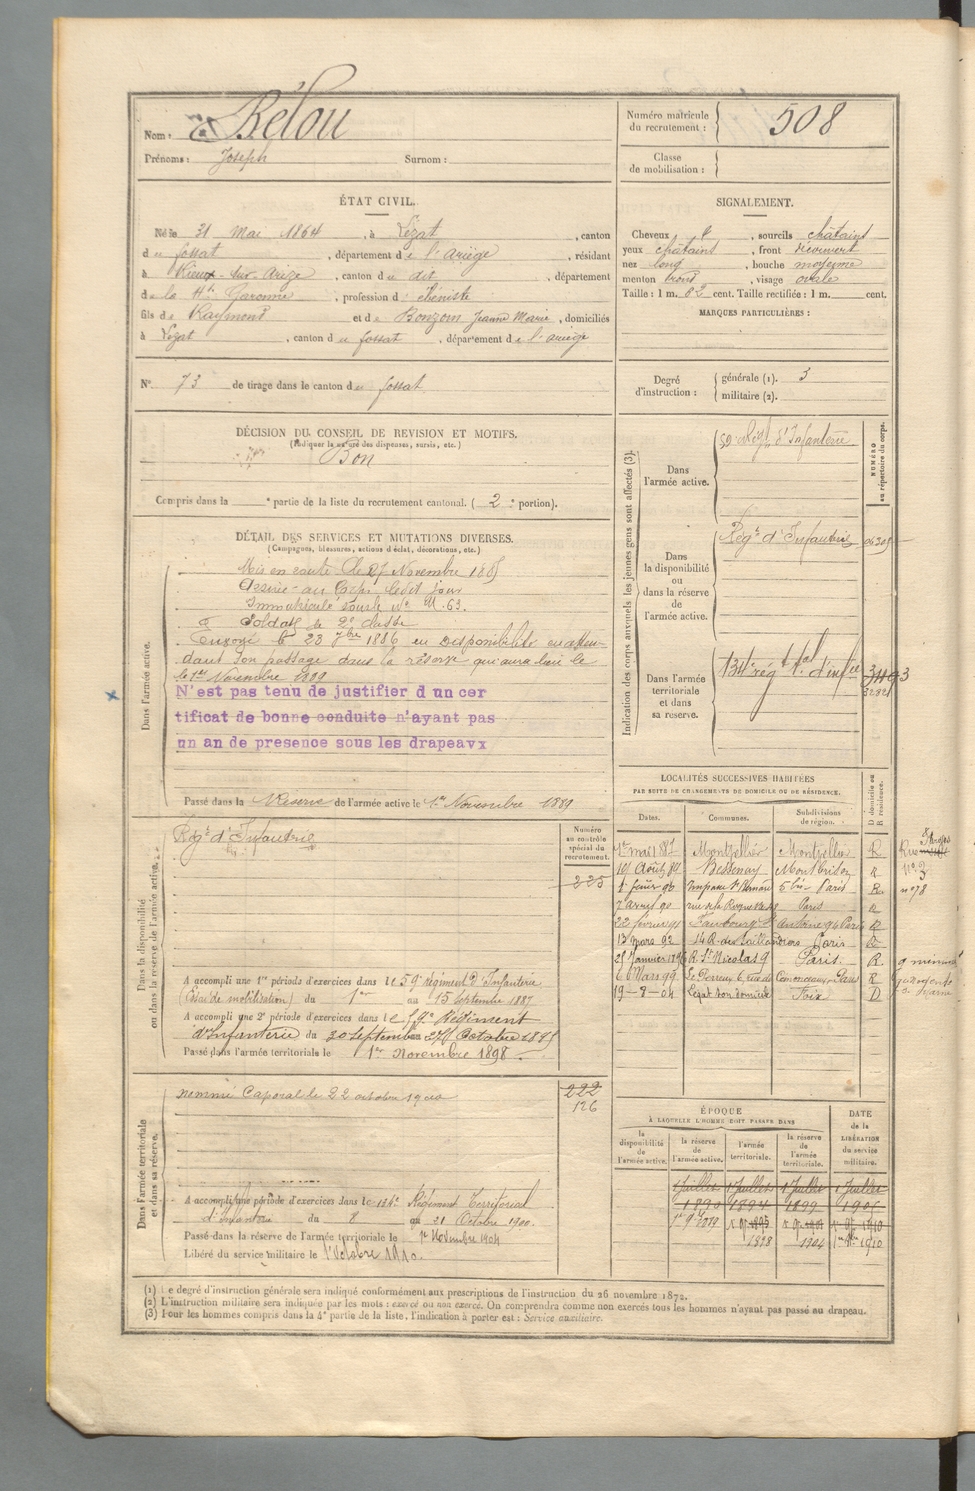 Nom : Bélou
Prénoms : Joseph Surnom :
Numéro matricule du recrutement : 508
Classe de mobilisation :
ÉTAT CIVIL.
Né le 31 Mai 1864, à Lézat, canton
du fossat, département de l'ariège, résidant
à Rieux-sur-Arize, canton du dit, département
de la Hte Garonne, profession d'ébéniste
fils de Raymond et de Bonzom Jeanne Marie, domiciliés
à Lezat, canton du fossat, département de l'ariège
SIGNALEMENT.
Cheveux, sourcils châtains
yeux châtains, front découvert
nez long, bouche moyenne
menton rond, visage ovale
Taille : 1 m. 62 cent. Taille rectifiée : 1 m. cent.
MARQUES PARTICULIÈRES :
No 73 de tirage dans le canton du fossat
Degré d'instruction : générale (1). 3
militaire (2).
DÉCISION DU CONSEIL DE REVISION ET MOTIFS.
(Indiquer la nature des dispenses, sursis, etc.)
Bon
Compris dans la e partie de la liste du recrutement cantonal. (2e portion).
DÉTAIL DES SERVICES ET MUTATIONS DIVERSES.
(Campagnes, blessures, actions d'éclat, décorations, etc.)
Dans l'armée active.
Mis en route le 27 Novembre 1885
Arrivé au Corps ledit jour
Immatriculé sous le No
Soldat de 2e classe
Envoyé le 23 7bre 1886 en Disponibilité en atten-
dant son passage dans la réserve qui aura lieu le
le 1er Novembre 1889
N'est pas tenu de justifier d un cer
tificat de bonne conduite n'ayant pas
un an de presence sous les drapeavx
Passé dans la Réserve de l'armée active le 1er Novembre 1889
Indication des corps auxquels les jeunes gens sont affectés (3).
NUMÉRO au répertoire du corps.
Dans l'armée active.
59e Régt d'Infanterie
Dans la disponibilité ou dans la réserve de l'armée active.
Régt d'Infanterie
Dans l'armée territoriale et dans sa réserve.
134e régt tal d'infie
Dans la disponibilité ou dans la réserve de l'armée active.
Régt d'Infanterie
Numéro au contrôle spécial du recrutement.
225
A accompli une 1re période d'exercices dans le 59e régiment d'Infanterie
(Essai de mobilisation) du 1er au 15 septembre 1887
A accompli une 2e période d'exercices dans le 59e Régiment
d'Infanterie du 30 septembre au 27 Octobre 1891
Passé dans l'armée territoriale le 1er Novembre 1898
LOCALITÉS SUCCESSIVES HABITÉES
PAR SUITE DE CHANGEMENTS DE DOMICILE OU DE RÉSIDENCE.
Dates. Communes. Subdivisions de région. D domicile ou R résidence.
1er mai 1887 Montpellier Montpellier R
Août 89 Bessenay Montbrison R
1 février 90 Impasse St Bernard 5 bis Paris R
7 avril 90 rue de la Roquette Paris R
22 février 91 Faubourg St Antoine 96 Paris R
13 mars 92 Paris R
28 Janvier 1896 R. St Nicolas 9 Paris. R
6 Mars 99 Le Perreux Paris R
19-9-04 Lézat son domicile Foix D
Dans l'armée territoriale et dans sa réserve.
nommé Caporal le 22 octobre 1900
222
126
A accompli une période d'exercices dans le 134e Régiment Territorial
d'Infanterie du 8 au 21 Octobre 1900.
Passé dans la réserve de l'armée territoriale le 1er Novembre 1904
Libéré du service militaire le 1er Octobre 1910.
ÉPOQUE
À LAQUELLE L'HOMME DOIT PASSER DANS
DATE de la LIBÉRATION du service militaire.
la disponibilité de l'armée active. la réserve de l'armée active. l'armée territoriale. la réserve de l'armée territoriale.
1 Juillet 1 Juillet 1 Juillet 1 Juillet
1890 1894 1899 1905
1898 1904
(1) Le degré d'instruction générale sera indiqué conformément aux prescriptions de l'instruction du 26 novembre 1872.
(2) L'instruction militaire sera indiquée par les mots : exercé ou non exercé. On comprendra comme non exercés tous les hommes n'ayant pas passé au drapeau.
(3) Pour les hommes compris dans la 4e partie de la liste, l'indication à porter est : Service auxiliaire.